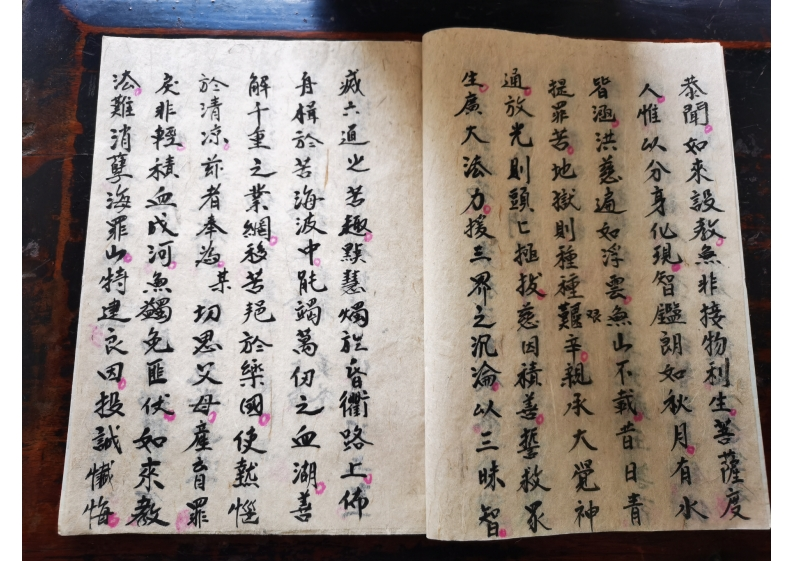 恭聞如來設教無非接物利生菩薩度
人惟以分身化現智鑑朗如秋月有水
皆涵洪慈遍如浮雲無山不載昔日青
提罪苦地獄則種種艱辛親承大覺神
通放光則頭匕極拔慈因積善誓救眾
生廣大法力援三界之沉淪以三昧智
滅六道之苦趣點慧燭於昏衢路上佈
舟楫於苦海波中能竭萬仞之血湖善
解千重之業網移苦於樂國使熱惱
於清凉茲者奉為某切思父母產育罪
戾非輕積血成河無蠲免匪伏如來教
法難消孽海罪山特建良因投誠懺悔